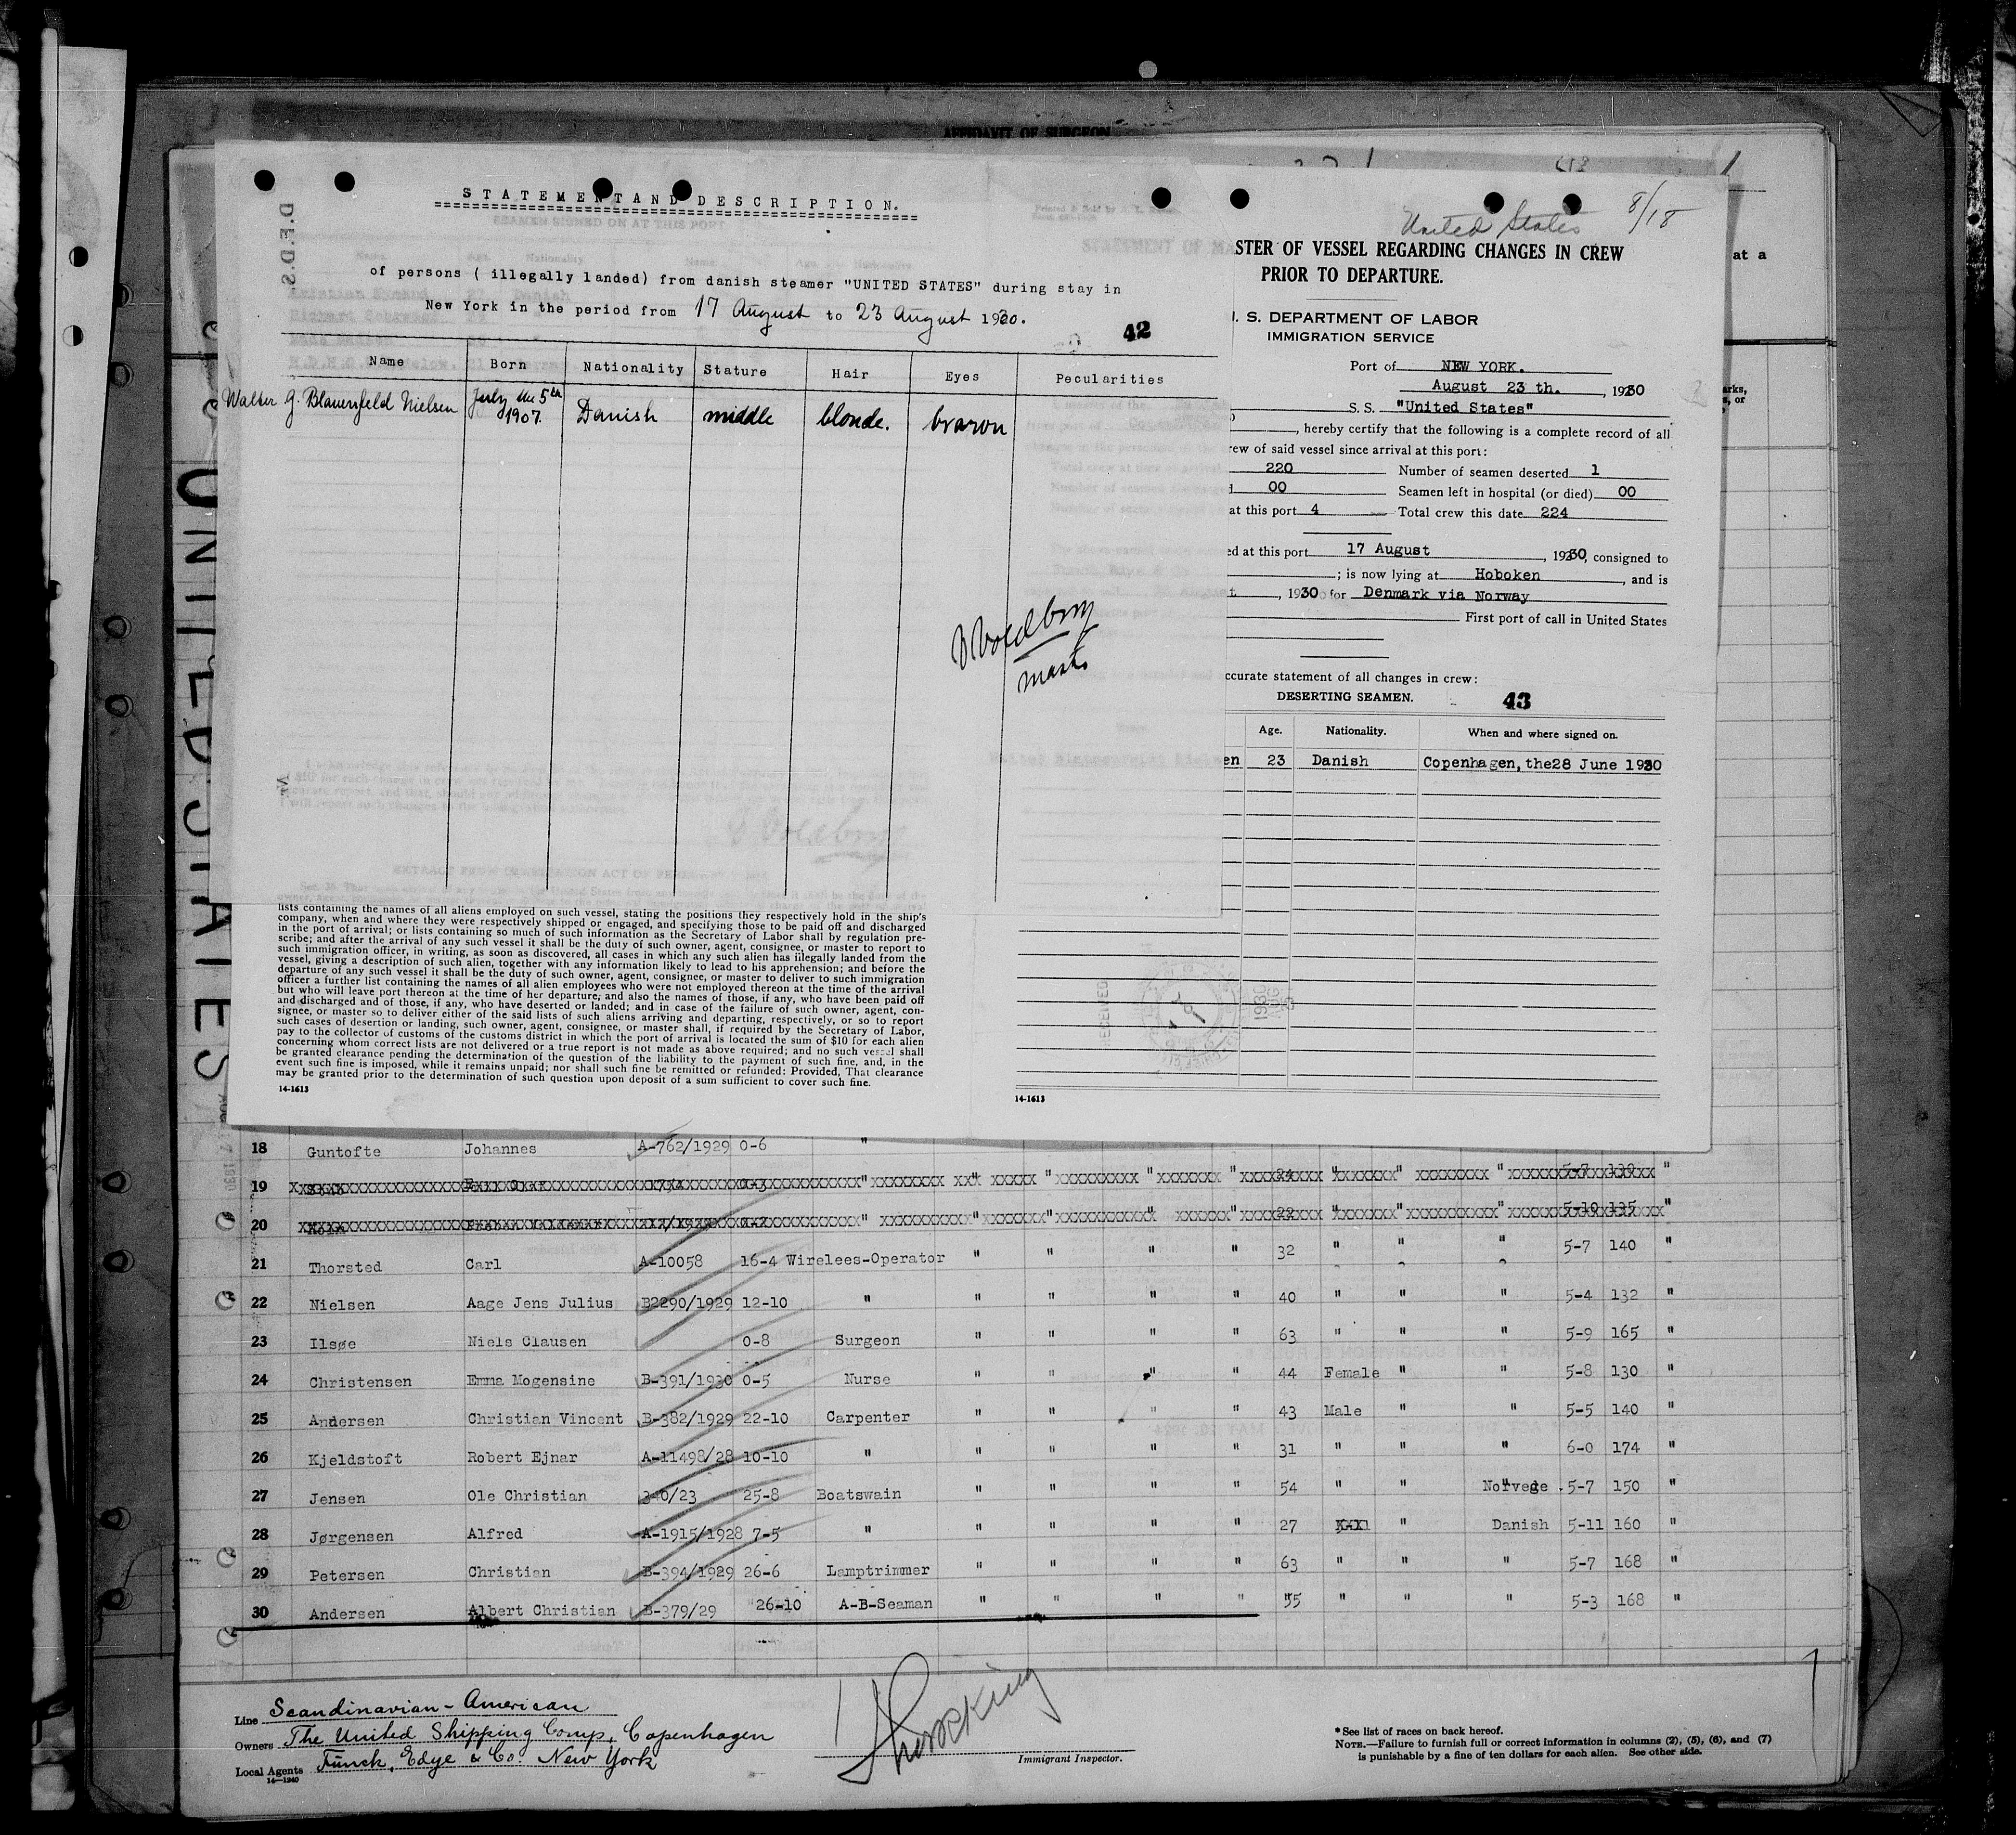 AFFIDAVIT OF SURGEON
STATEMENT AND DESCRIPTION.
D.F.D.S.
of persons ( illegally landed) from danish steamer "UNITED STATES" during stay in
New York in the period from 17 August to 23 August 1930.
42
Name Born Nationality Stature Hair Eyes Pecularities
Walter G. Blauenfeld Nielsen July the 5th 1907. Danish middle blonde. brawn
Woldbrry
mast.
United States 8/18
STER OF VESSEL REGARDING CHANGES IN CREW
PRIOR TO DEPARTURE.
. S. DEPARTMENT OF LABOR
IMMIGRATION SERVICE
Port of NEW YORK.
August 23 th. , 1930
S. S. "United States"
, hereby certify that the following is a complete record of all
rew of said vessel since arrival at this port:
220 Number of seamen deserted 1
00 Seamen left in hospital (or died) 00
at this port 4 Total crew this date 224
ed at this port 17 August , 1930, consigned to
; is now lying at Hoboken , and is
, 1930 for Denmark via Norway
First port of call in United States
ccurate statement of all changes in crew:
DESERTING SEAMEN. 43
Age. Nationality. When and where signed on.
en 23 Danish Copenhagen, the28 June 1930
at a
arks,
s, or
UNITED STATES
lists containing the names of all aliens employed on such vessel, stating the positions they respectively hold in the ship's
company, when and where they were respectively shipped or engaged, and specifying those to be paid off and discharged
in the port of arrival; or lists containing so much of such information as the Secretary of Labor shall by regulation pre-
scribe; and after the arrival of any such vessel it shall be the duty of such owner, agent, consignee, or master to report to
such immigration officer, in writing, as soon as discovered, all cases in which any such alien has illegally landed from the
vessel, giving a description of such alien, together with any information likely to lead to his apprehension; and before the
departure of any such vessel it shall be the duty of such owner, agent, consignee, or master to deliver to such immigration
officer a further list containing the names of all alien employees who were not employed thereon at the time of the arrival
but who will leave port thereon at the time of her departure, and also the names of those, if any, who have been paid off
and discharged and of those, if any, who have deserted or landed; and in case of the failure of such owner, agent, con-
signee, or master so to deliver either of the said lists of such aliens arriving and departing, respectively, or so to report
such cases of desertion or landing, such owner, agent, consignee, or master shall, if required by the Secretary of Labor,
pay to the collector of customs of the customs district in which the port of arrival is located the sum of $10 for each alien
concerning whom correct lists are not delivered or a true report is not made as above required; and no such vessel shall
be granted clearance pending the determination of the question of the liability to the payment of such fine, and, in the
event such fine is imposed, while it remains unpaid; nor shall such fine be remitted or refunded: Provided, That clearance
may be granted prior to the determination of such question upon deposit of a sum sufficient to cover such fine.
14-1613
RECEIVED
1930
14-1613
18 Guntofte Johannes A-762/1929 0-6 "
19 24 5-7 130 "
20 22 5-10 135 "
21 Thorsted Carl A-10058 16-4 Wirelees-Operator " " " " 32 " " " 5-7 140 "
22 Nielsen Aage Jens Julius B2290/1929 12-10 " " " " " 40 " " " 5-4 132 "
23 Ilsøe Niels Clausen 0-8 Surgeon " " " " 63 " " " 5-9 165 "
24 Christensen Emma Mogensine B-391/1930 0-5 Nurse " " " " 44 Female " " 5-8 130 "
25 Andersen Christian Vincent B-382/1929 22-10 Carpenter " " " " 43 Male " " 5-5 140 "
26 Kjeldstoft Robert Ejnar A-11498/28 10-10 " " " " " 31 " " " 6-0 174 "
27 Jensen Ole Christian 340/23 25-8 Boatswain " " " " 54 " " Norvege 5-7 150 "
28 Jørgensen Alfred A-1915/1928 7-5 " " " " " 27 " Danish 5-11 160 "
29 Petersen Christian B-394/1929 26-6 Lamptrimmer " " " " 63 " " " 5-7 168 "
30 Andersen Albert Christian B-379/29 26-10 A-B-Seaman " " " " 55 " " " 5-3 168 "
Line Scandinavian-American
Owners The United Shipping Comp, Copenhagen
Local Agents Funck, Edye & Co. New York
14-1240
Immigrant Inspector.
* See list of races on back hereof.
NOTE.—Failure to furnish full or correct information in columns (2), (5), (6), and (7)
is punishable by a fine of ten dollars for each alien. See other side.